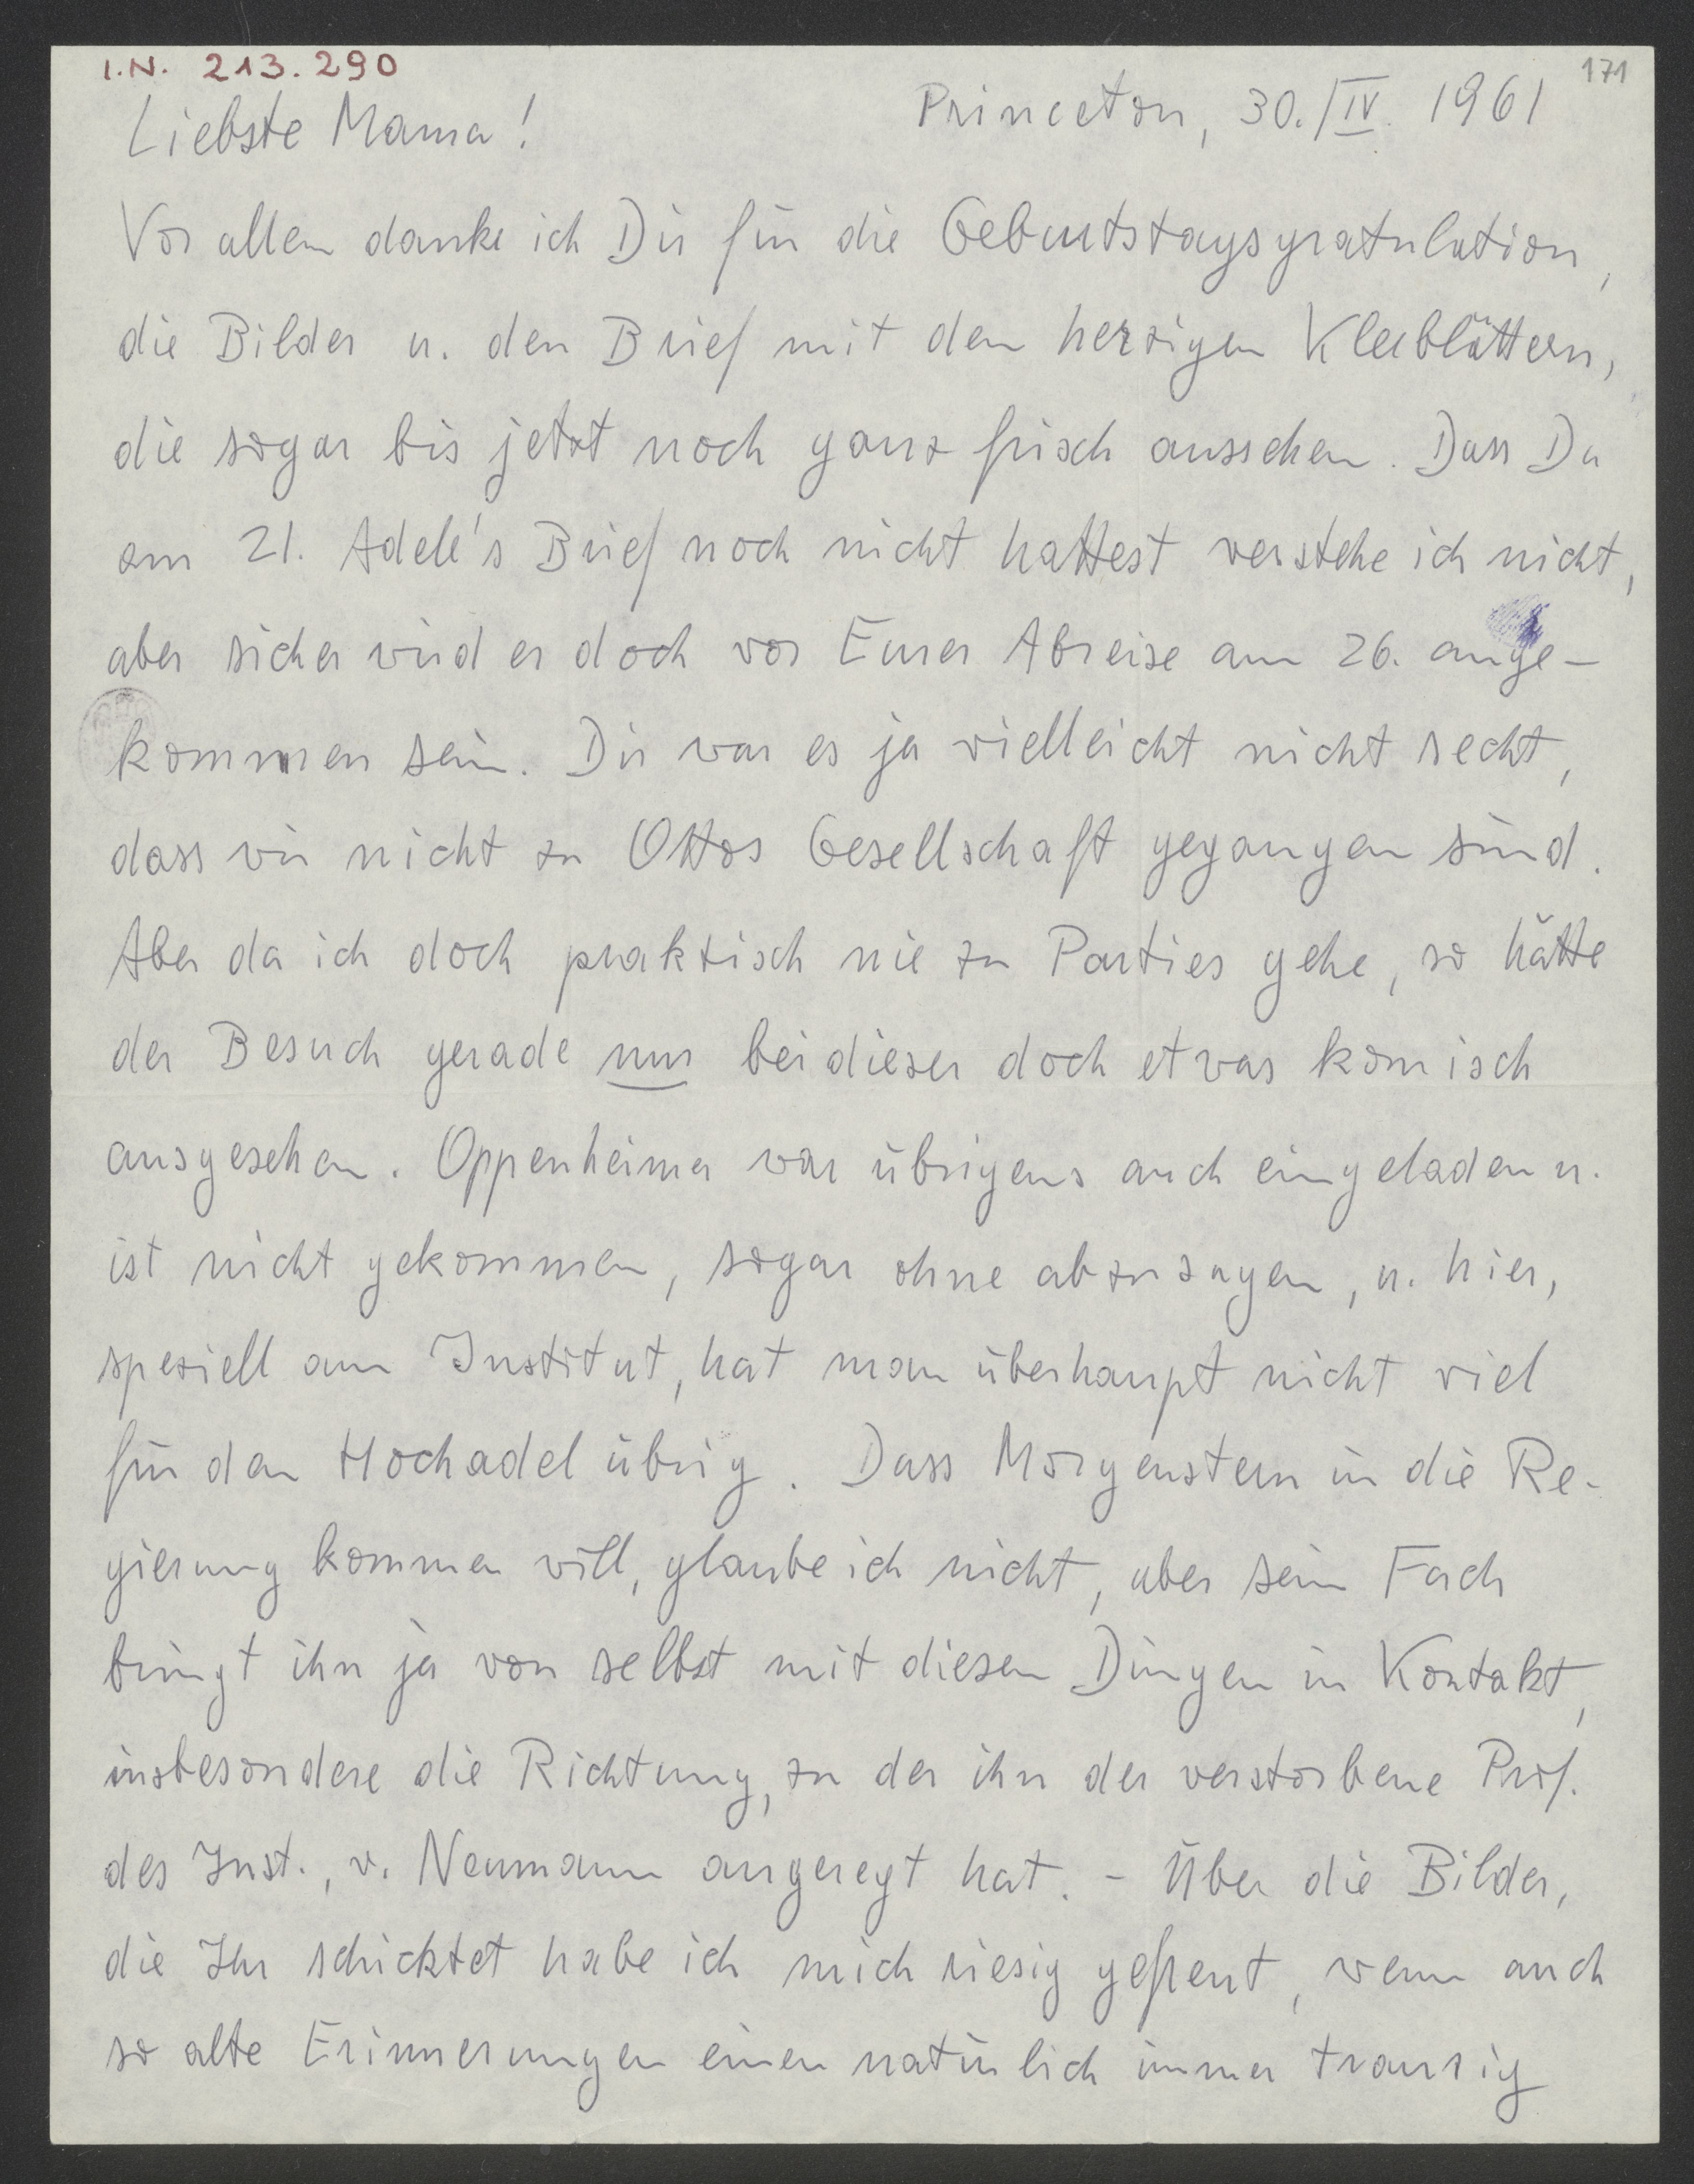 I.N. 213.290
171
Liebste Mama! Princeton, 30./IV. 1961
Vor allem danke ich Dir für die Geburtstagsgratulation,
die Bilder u. den Brief mit den herzigen Kleeblättern,
die sogar bis jetzt noch ganz frisch aussehen. Dass Du
am 21. Adele's Brief noch nicht hattest verstehe ich nicht,
aber sicher wird er doch vor Eurer Abreise am 26. ange-
kommen sein. Dir war es ja vielleicht nicht recht,
dass wir nicht zu Ottos Gesellschaft gegangen sind.
Aber da ich doch praktisch nie zu Parties gehe, so hätte
der Besuch gerade nur bei dieser doch etwas komisch
ausgesehen. Oppenheimer war übrigens auch eingeladen u.
ist nicht gekommen, sogar ohne abzusagen, u. hier,
speziell am Institut, hat man überhaupt nicht viel
für den Hochadel übrig. Dass Morgenstern in die Re-
gierung kommen will, glaube ich nicht, aber sein Fach
bringt ihn ja von selbst mit diesen Dingen in Kontakt,
insbesondere die Richtung, zu der ihn der verstorbene Prof.
des Inst., v. Neumann angeregt hat. - Über die Bilder,
die Ihr schicktet habe ich mich riesig gefreut, wenn auch
so alte Erinnerungen einen natürlich immer traurig